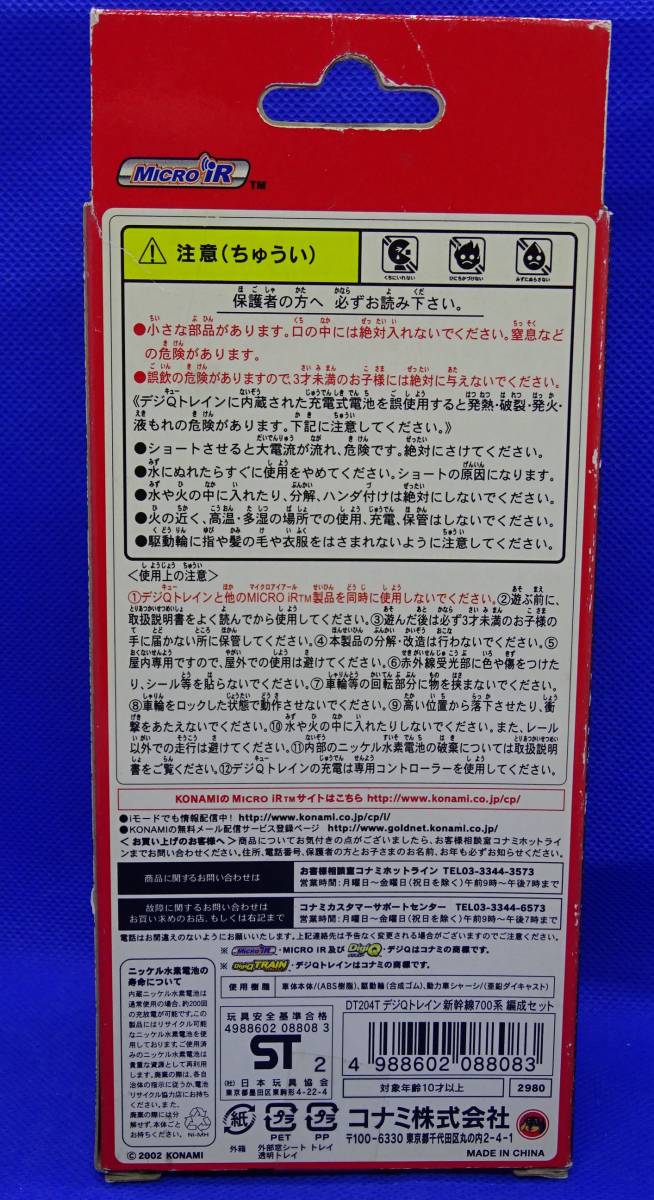 MICRO iR TM
注意(ちゅうい)
くちにいれない
ひにちかづけない
みずにぬらさない
保護者の方へ 必ずお読み下さい。
●小さな部品があります。口の中には絶対入れないでください。窒息など
の危険があります。
●誤飲の危険がありますので、3才未満のお子様には絶対に与えないでください。
《デジQトレインに内蔵された充電式電池を誤使用すると発熱・破裂・発火・
液もれの危険があります。下記に注意してください。》
●ショートさせると大電流が流れ、危険です。絶対にさけてください。
●水にぬれたらすぐに使用をやめてください。ショートの原因になります。
●水や火の中に入れたり、分解、ハンダ付けは絶対にしないでください。
●火の近く、高温・多湿の場所での使用、充電、保管はしないでください。
●駆動輪に指や髪の毛や衣服をはさまれないように注意してください。
<使用上の注意>
①デジQトレインと他のMICRO iRTM製品を同時に使用しないでください。②遊ぶ前に、
取扱説明書をよく読んでから使用してください。③遊んだ後は必ず3才未満のお子様の
手に届かない所に保管してください。④本製品の分解・改造は行わないでください。⑤
屋内専用ですので、屋外での使用は避けてください。⑥赤外線受光部に色や傷をつけた
り、シール等を貼らないでください。⑦車輪等の回転部分に物を挟まないでください。
⑧車輪をロックした状態で動作させないでください。⑨高い位置から落下させたり、衝
撃をあたえないでください。⑩水や火の中に入れたりしないでください。また、レール
以外での走行は避けてください。⑪内部のニッケル水素電池の破棄については取扱説明
書をご覧ください。⑫デジQトレインの充電は専用コントローラーを使用してください。
KONAMIのMICRO iRTMサイトはこちら http://www.konami.co.jp/cp/
●iモードでも情報配信中! http://www.konami.co.jp/cp/i/
●KONAMIの無料メール配信サービス登録ページ http://www.goldnet.konami.co.jp/
<お買い上げのお客様へ>商品についてお気付きの点がございましたら、お客様相談室コナミホットライ
ンまでお問い合わせください。住所、電話番号、保護者の方とお子さまのお名前、お年も必ずお知らせください。
商品に関するお問い合わせは
お客様相談室コナミホットライン TEL03-3344-3573
営業時間:月曜日〜金曜日(祝日を除く)午前9時〜午後7時まで
故障に関するお問い合わせは
お買い求めのお店、もしくは右記まで
コナミカスタマーサポートセンター TEL03-3344-6573
営業時間:月曜日〜金曜日(祝日を除く)午前9時〜午後7時まで
電話はお間違えのないようにお願いいたします。上記連絡先は予告なく変更される場合がございますのでご注意ください。
※MICRO iR・MICRO iR及びDigiQ・デジQはコナミの商標です。
※DigiQ TRAIN・デジQトレインはコナミの商標です。
ニッケル水素電池の
寿命について
内蔵ニッケル水素電池は
通常使用の場合、約200回
の充放電が可能です。この
製品にはリサイクル可能
なニッケル水素電池を使
用しております。ご使用済
みのニッケル水素電池は
貴重な資源として再利用
します。廃棄の際は、各自
治体の指示に従うか、電池
リサイクル協力店にお持ち
ください。また、
廃棄の際には分
解せず、本体ごと
お持ちください。
Ni-MH
使用樹脂 車体本体/(ABS樹脂)、駆動輪/(合成ゴム)、動力車シャーシ/(亜鉛ダイキャスト)
玩具安全基準合格
4988602 08808 3
ST 2
(社)日本玩具協会
東京都墨田区東駒形4-22-4
DT204T デジQトレイン 新幹線700系 編成セット
4 988602 088083
対象年齢10才以上
2980
紙
外箱
プラ
PET
外部窓シート
透明トレイ
プラ
PP
トレイ
コナミ株式会社
〒100-6330 東京都千代田区丸の内2-4-1
© 2002 KONAMI
MADE IN CHINA